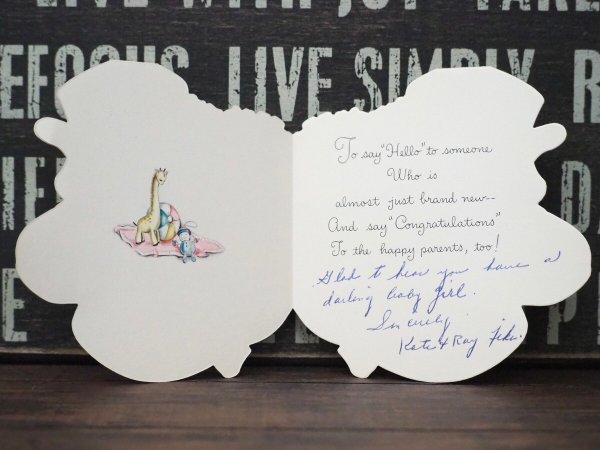 LIVE WITH JOY TAKE
REFOCUS LIVE SIMPLY R
To say "Hello" to someone
Who is
almost just brand new--
And say "Congratulations"
To the happy parents, too!
Glad to hear you have a
darling baby girl.
Sincerely
Kate & Ray